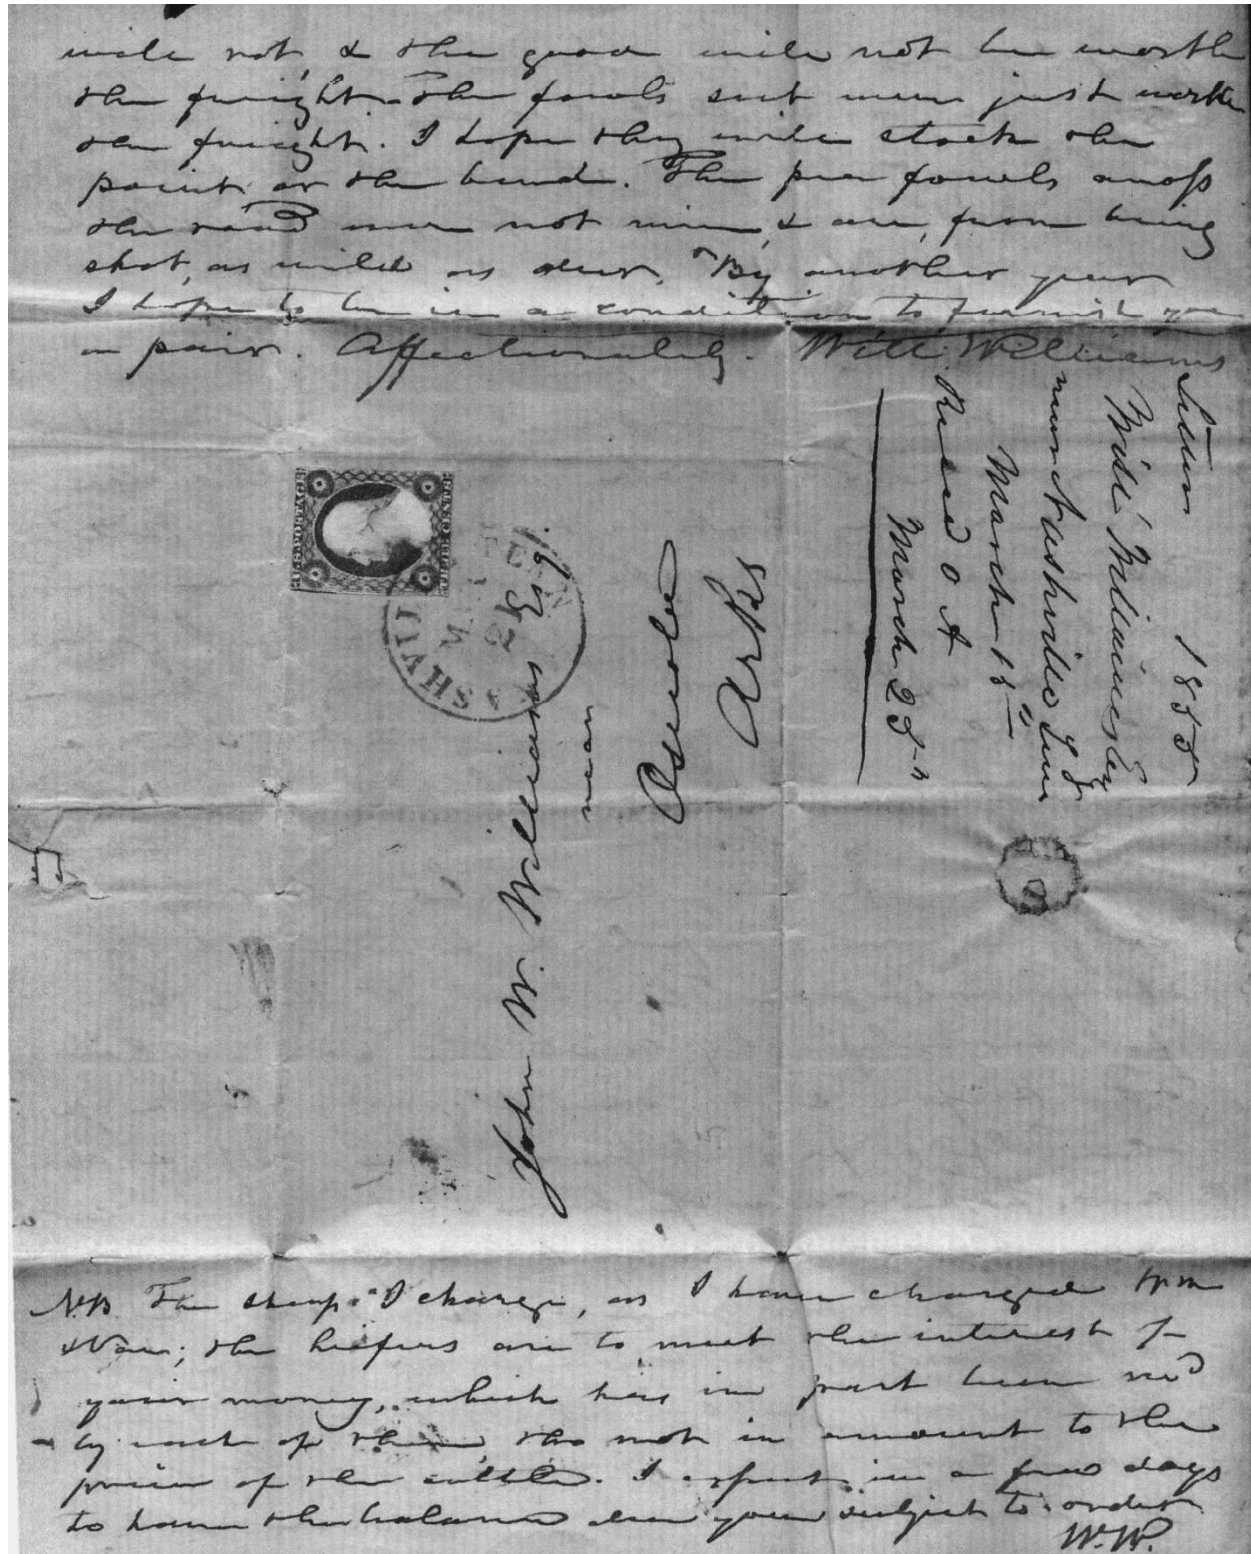 will not, & the good will not be worth
the freight. The fowls sent were just worth
the freight. I hope they will stock the
point or the bend. The pea fowls across
the road were not mine, & are, from being
shot, as wild as deer. By another year
I hope to be in a condition to furnish you
a pair. Affectionately. Will Williams
Letter 1855
Will Williams Esq
near Nashville Tenn
March 15
Recd O A
March 25th
U.S. POSTAGE
THREE CENTS
NASHVILLE TENN
MAR
21
John W. Williams Esq.
near
Osceola
Arks
N.B. The sheep I charge, as I have charged
; the heifers are to meet the interest of
your money, which has in part been recd
by each of them, tho not in amount to the
price of the cattle. I expect in a few days
to have the balance due you subject to order
W.W.